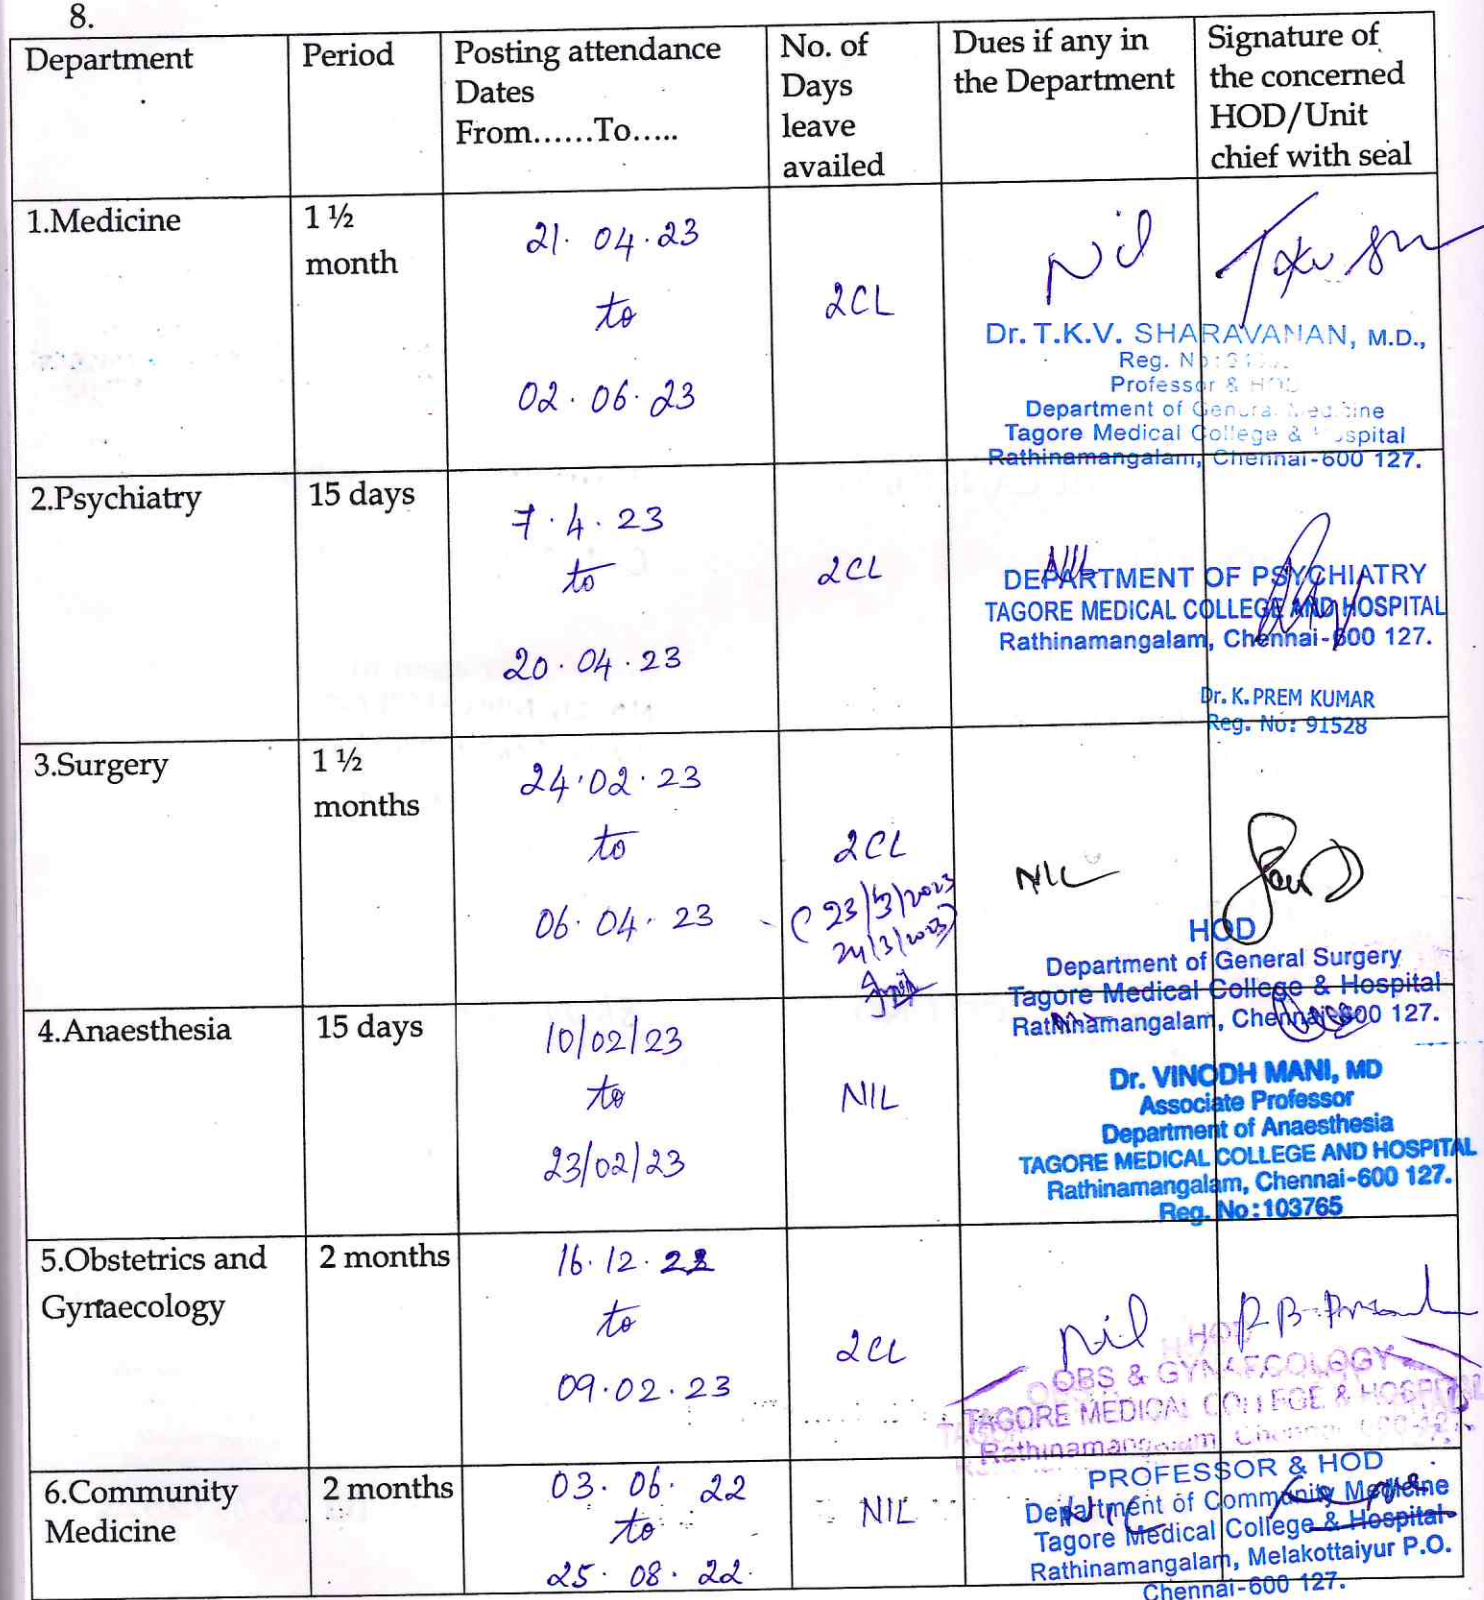 8.
Department
Period
Posting attendance
Dates
From......To.....
No. of
Days
leave
availed
Dues if any in
the Department
Signature of
the concerned
HOD/Unit
chief with seal
1.Medicine
1 ½
month
21. 04.23
to
02.06.23
2CL
Nil
Dr. T.K.V. SHARAVANAN, M.D.,
Reg. No:
Professor & HOD
Department of General Medicine
Tagore Medical College & Hospital
Rathinamangalam, Chennai-600 127.
2.Psychiatry
15 days
7.4.23
to
20.04.23
2CL
NIL
DEPARTMENT OF PSYCHIATRY
TAGORE MEDICAL COLLEGE AND HOSPITAL
Rathinamangalam, Chennai-600 127.
Dr. K. PREM KUMAR
Reg. No: 91528
3.Surgery
1 ½
months
24.02.23
to
06.04.23
2CL
(23/3/2023
24/3/2023)
NIL
HOD
Department of General Surgery
Tagore Medical College & Hospital
Rathinamangalam, Chennai-600 127.
4.Anaesthesia
15 days
10/02/23
to
23/02/23
NIL
Dr. VINODH MANI, MD
Associate Professor
Department of Anaesthesia
TAGORE MEDICAL COLLEGE AND HOSPITAL
Rathinamangalam, Chennai-600 127.
Reg. No:103765
5.Obstetrics and
Gynaecology
2 months
16.12.22
to
09.02.23
2CL
Nil
HOD
OBS & GYNAECOLOGY
TAGORE MEDICAL COLLEGE & HOSPITAL
Rathinamangalam, Chennai
6.Community
Medicine
2 months
03.06.22
to
25.08.22.
NIL
NIL
PROFESSOR & HOD
Department of Community Medicine
Tagore Medical College & Hospital
Rathinamangalam, Melakottaiyur P.O.
Chennai-600 127.